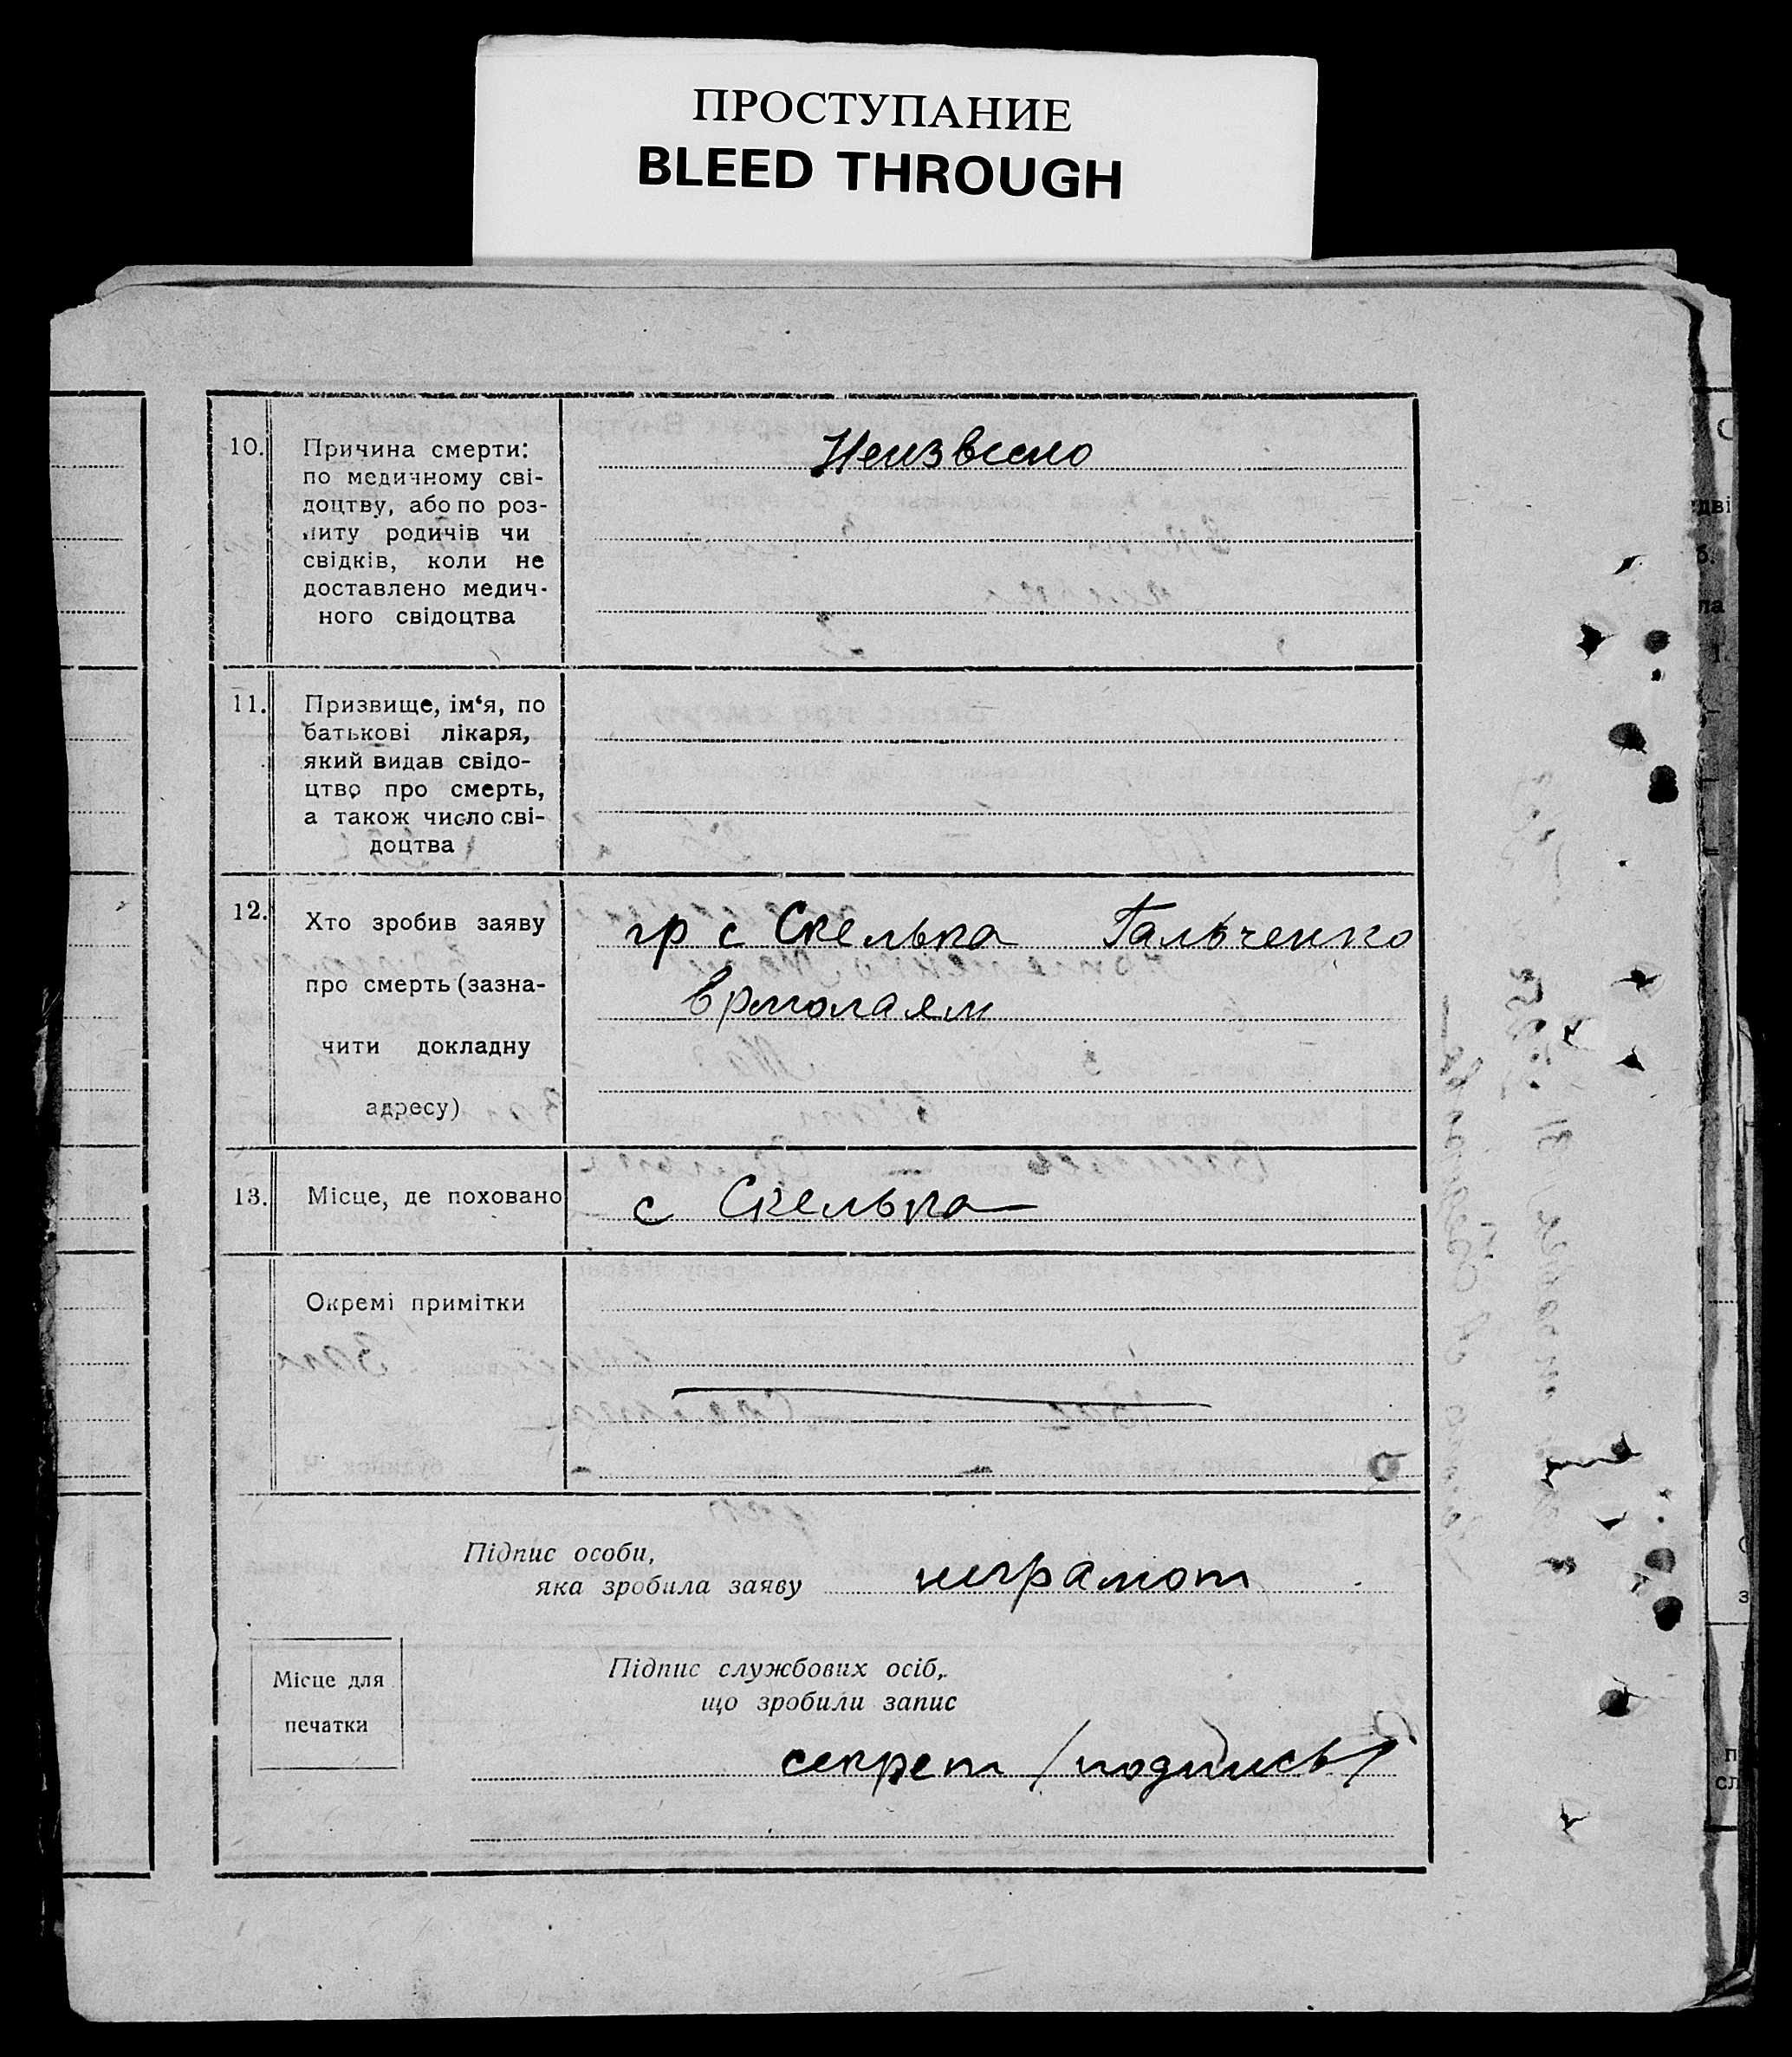 ПРОСТУПАНИЕ
BLEED THROUGH
10. Причина смерти: Неизвесно
по медичному сві-
доцтву, або по роз-
питу родичів чи
свідків, коли не
доставлено медич-
ного свідоцтва
11. Призвище, ім‘я, по
батькові лікаря,
який видав свідо-
цтво про смерть,
а також число сві-
доцтва
12. Хто зробив заяву гр с Скелька Гальченко
про смерть (зазна- Ермолаем
чити докладну
адресу)
13. Місце, де поховано с Скелька
Окремі примітки
Підпис особи,
яка зробила заяву неграмот
Місце для
печатки
Підпис службових осіб,
що зробили запис
секрет /подпись/